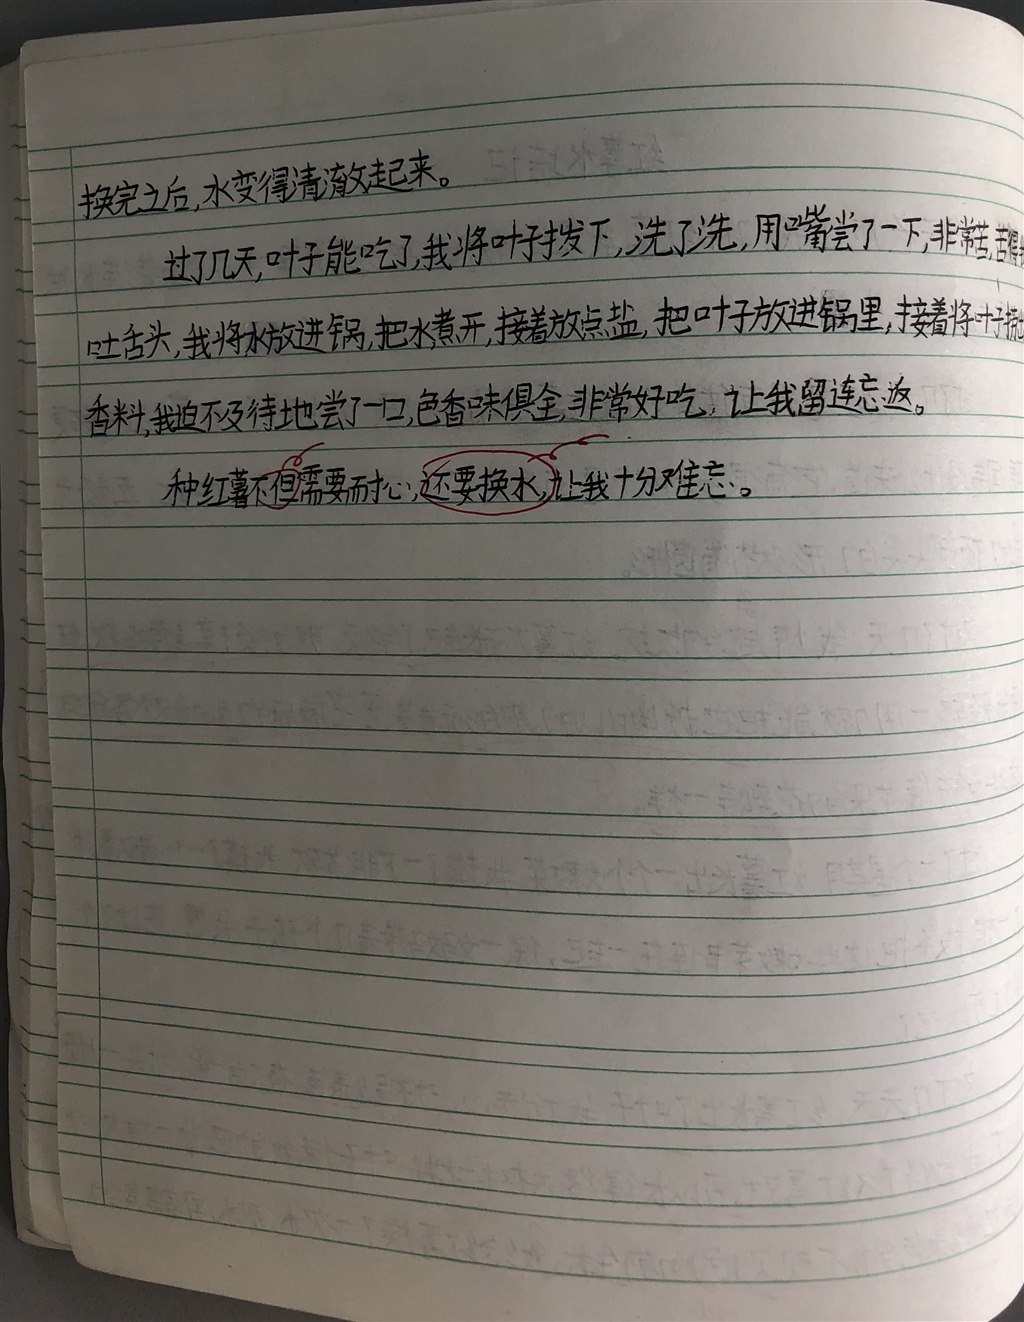 换完之后,水变得清澈起来。
过了几天,叶子能吃了,我将叶子拔下,洗了洗,用嘴尝了一下,非常苦,苦得
吐舌头,我将水放进锅,把水煮开,接着放点盐,把叶子放进锅里,接着将叶子
香料,我迫不及待地尝了一口,色香味俱全,非常好吃,让我留连忘返。
种红薯不但需要耐心,还要换水,让我十分难忘。